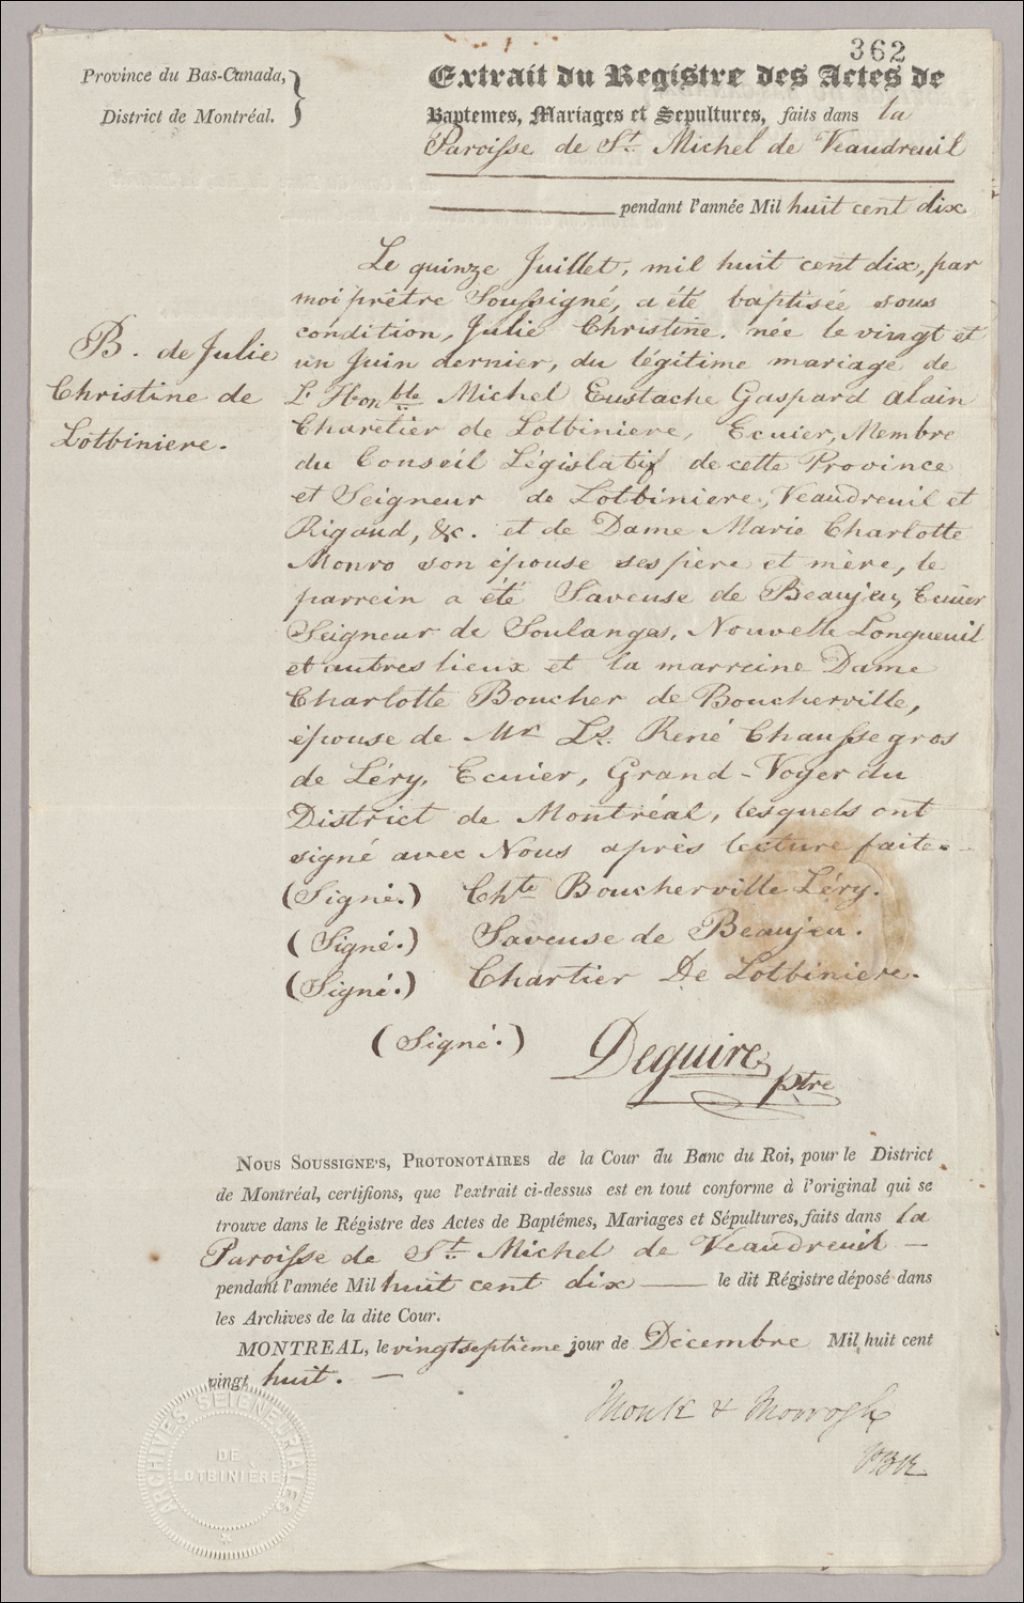 362
Province du Bas-Canada,
District de Montréal.
Extrait du Registre des Actes de
Baptemes, Mariages et Sepultures, faits dans la
Paroisse de St. Michel de Veaudreuil
pendant l'année Mil huit cent dix
B. de Julie
Christine de
Lotbiniere.
Le quinze Juillet, mil huit cent dix, par
moi prêtre Soussigné, a été baptisée sous
condition, Julie Christine. née le vingt et
un Juin dernier, du légitime mariage de
L'Honble Michel Eustache Gaspard Alain
Charetier de Lotbiniere, Ecuier, Membre
du Conseil Législatif de cette Province
et Seigneur de Lotbiniere, Veaudreuil et
Rigaud, &c. et de Dame Marie Charlotte
Monro son épouse ses pere et mère, le
parrein a été Saveuse de Beaujeu, Ecuier
Seigneur de Soulanges, Nouvelle Longueuil
et autres lieux et la marreine Dame
Charlotte Boucher de Boucherville,
épouse de Mr Ls. René Chaussegros
de Léry, Ecuier, Grand-Voyer du
District de Montréal, lesquels ont
signé avec Nous après lecture faite.
(Signé.) Chte Boucherville Léry.
(Signé.) Saveuse de Beaujeu.
(Signé.) Chartier De Lotbiniere.
(Signé.) Deguire ptre
NOUS SOUSSIGNE'S, PROTONOTAIRES de la Cour du Banc du Roi, pour le District
de Montréal, certifions, que l'extrait ci-dessus est en tout conforme à l'original qui se
trouve dans le Régistre des Actes de Baptêmes, Mariages et Sépultures, faits dans la
Paroisse de St. Michel de Veaudreuil
pendant l'année Mil huit cent dix le dit Régistre déposé dans
les Archives de la dite Cour.
MONTREAL, le vingtseptième jour de Décembre Mil huit cent
vingt huit.
Monk & Morrogh
PBR
ARCHIVES SEIGNEURIALES
DE
LOTBINIÈRE